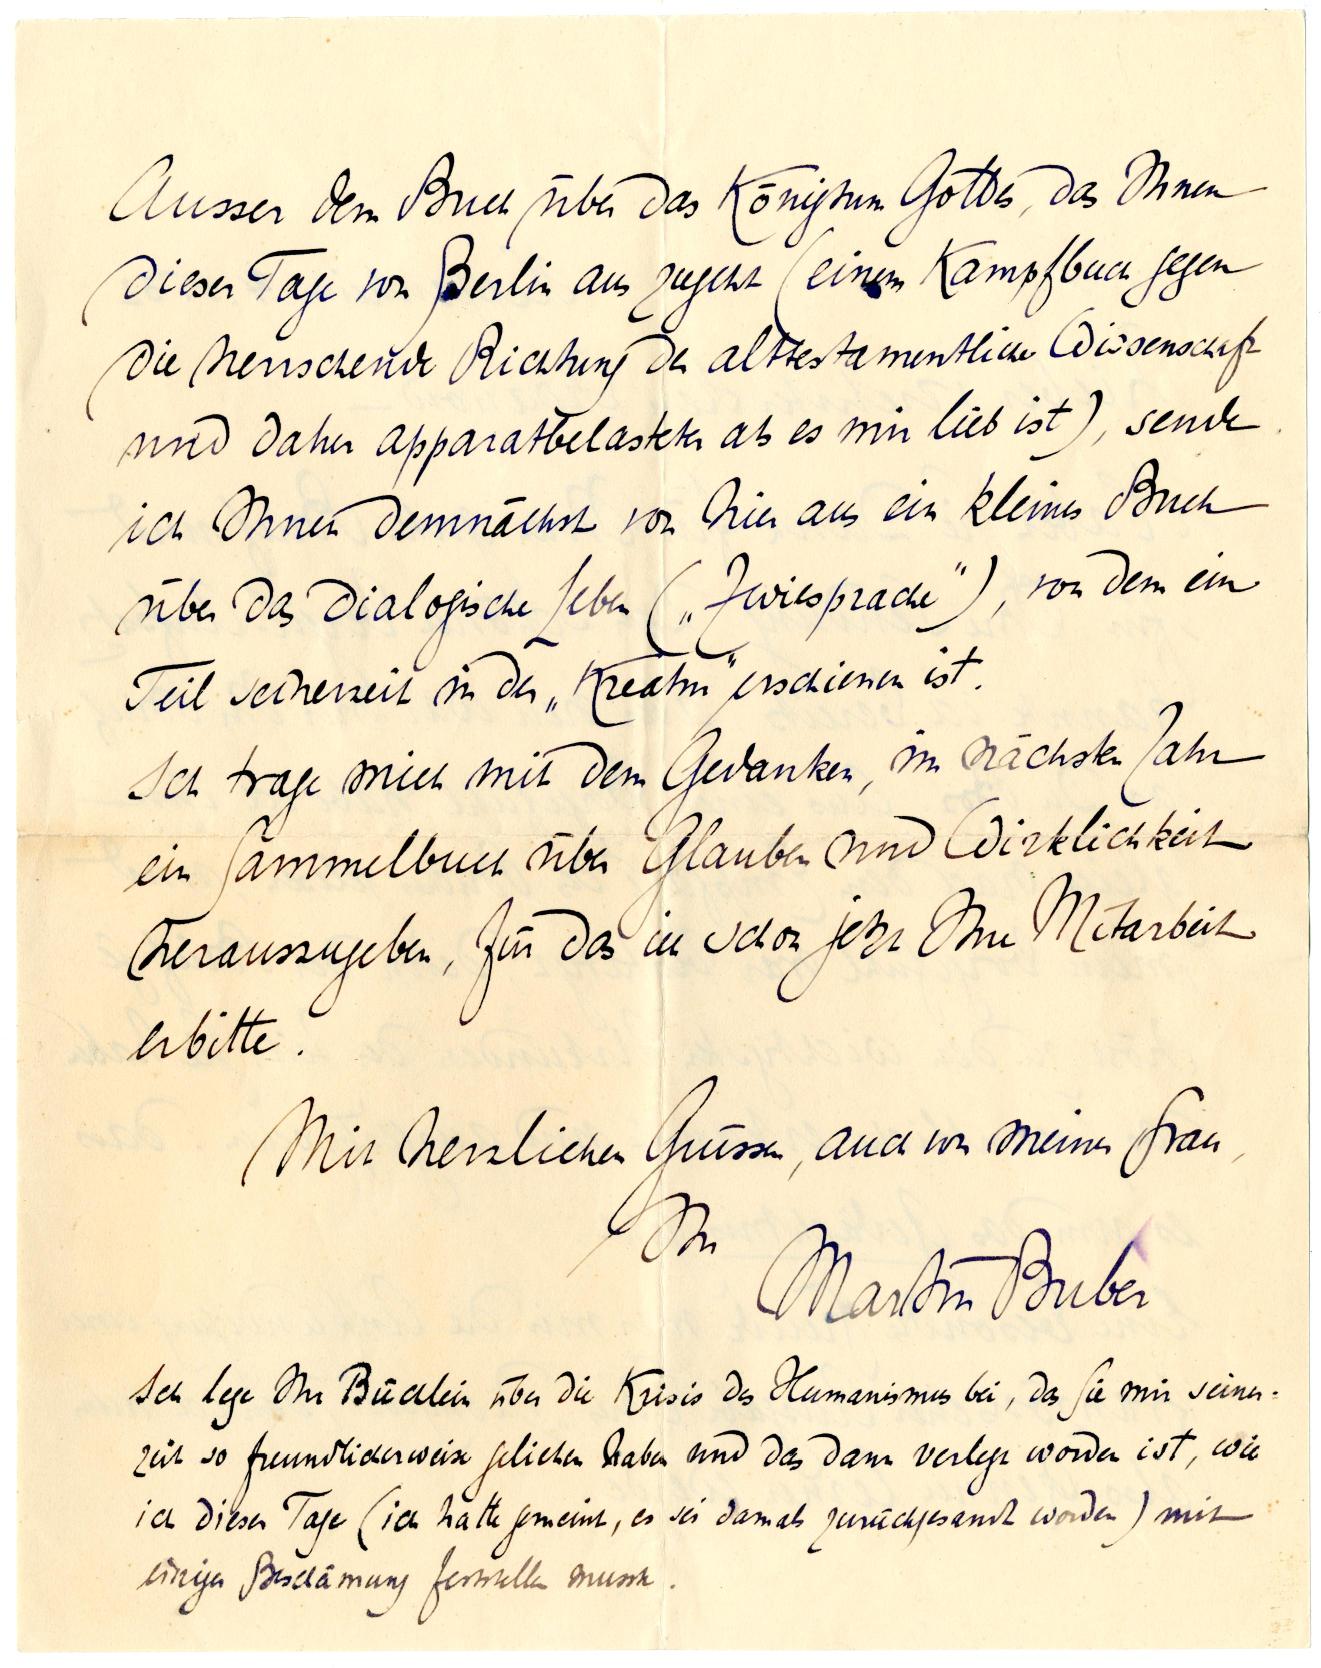 Ausser dem Buch über das Königtum Gottes, das Ihnen
dieser Tage von Berlin aus zugeht (einem Kampfbuch gegen
die herrschende Richtung der alttestamentlichen Wissenschaft
und daher apparatbelasteter als es mir lieb ist), sende
ich Ihnen demnächst von hier aus ein kleines Buch
über das dialogische Leben („Zwiesprache“), von dem ein
Teil seinerzeit in der „Kreatur“ erschienen ist.
Ich trage mich mit dem Gedanken, im nächsten Jahr
ein Sammelbuch über Glauben und Wirklichkeit
herauszugeben, für das ich schon jetzt Ihre Mitarbeit
erbitte.
Mit herzlichen Grüssen, auch von meiner Frau,
Ihr
Martin Buber
Ich lege Ihr Büchlein über die Krisis des Humanismus bei, das Sie mir seiner-
zeit so freundlicherweise geliehen haben und das dann verlegt worden ist, wie
ich dieser Tage (ich hatte gemeint, es sei damals zurückgesandt worden) mit
einiger Beschämung feststellen musste.